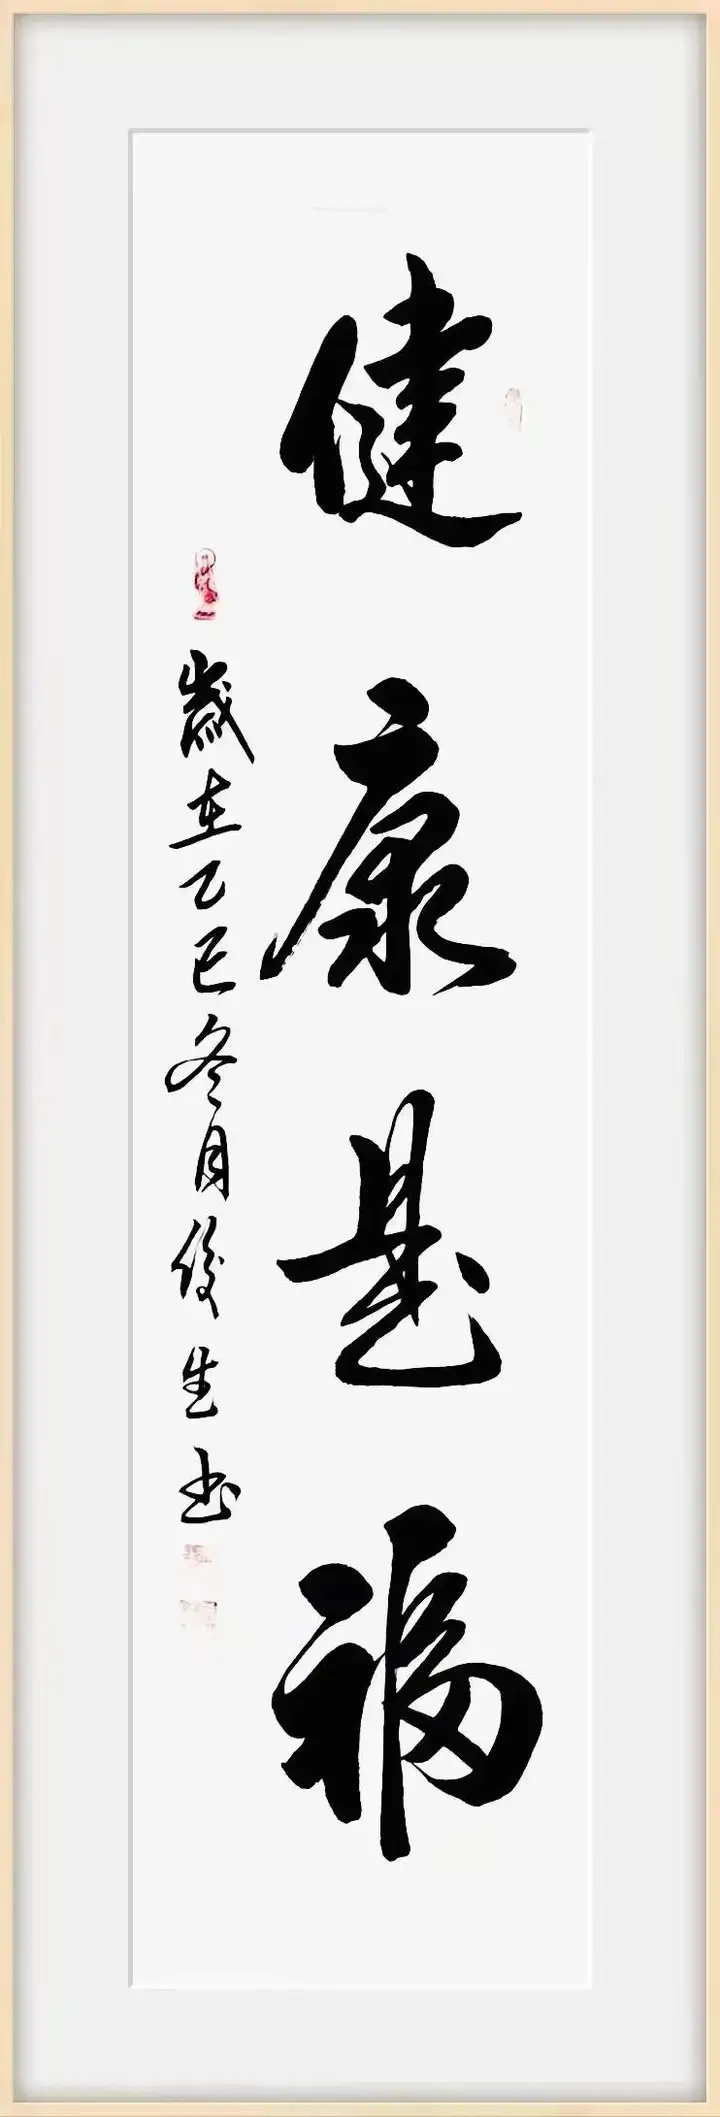 健康是福
歲在乙巳冬月俊生书